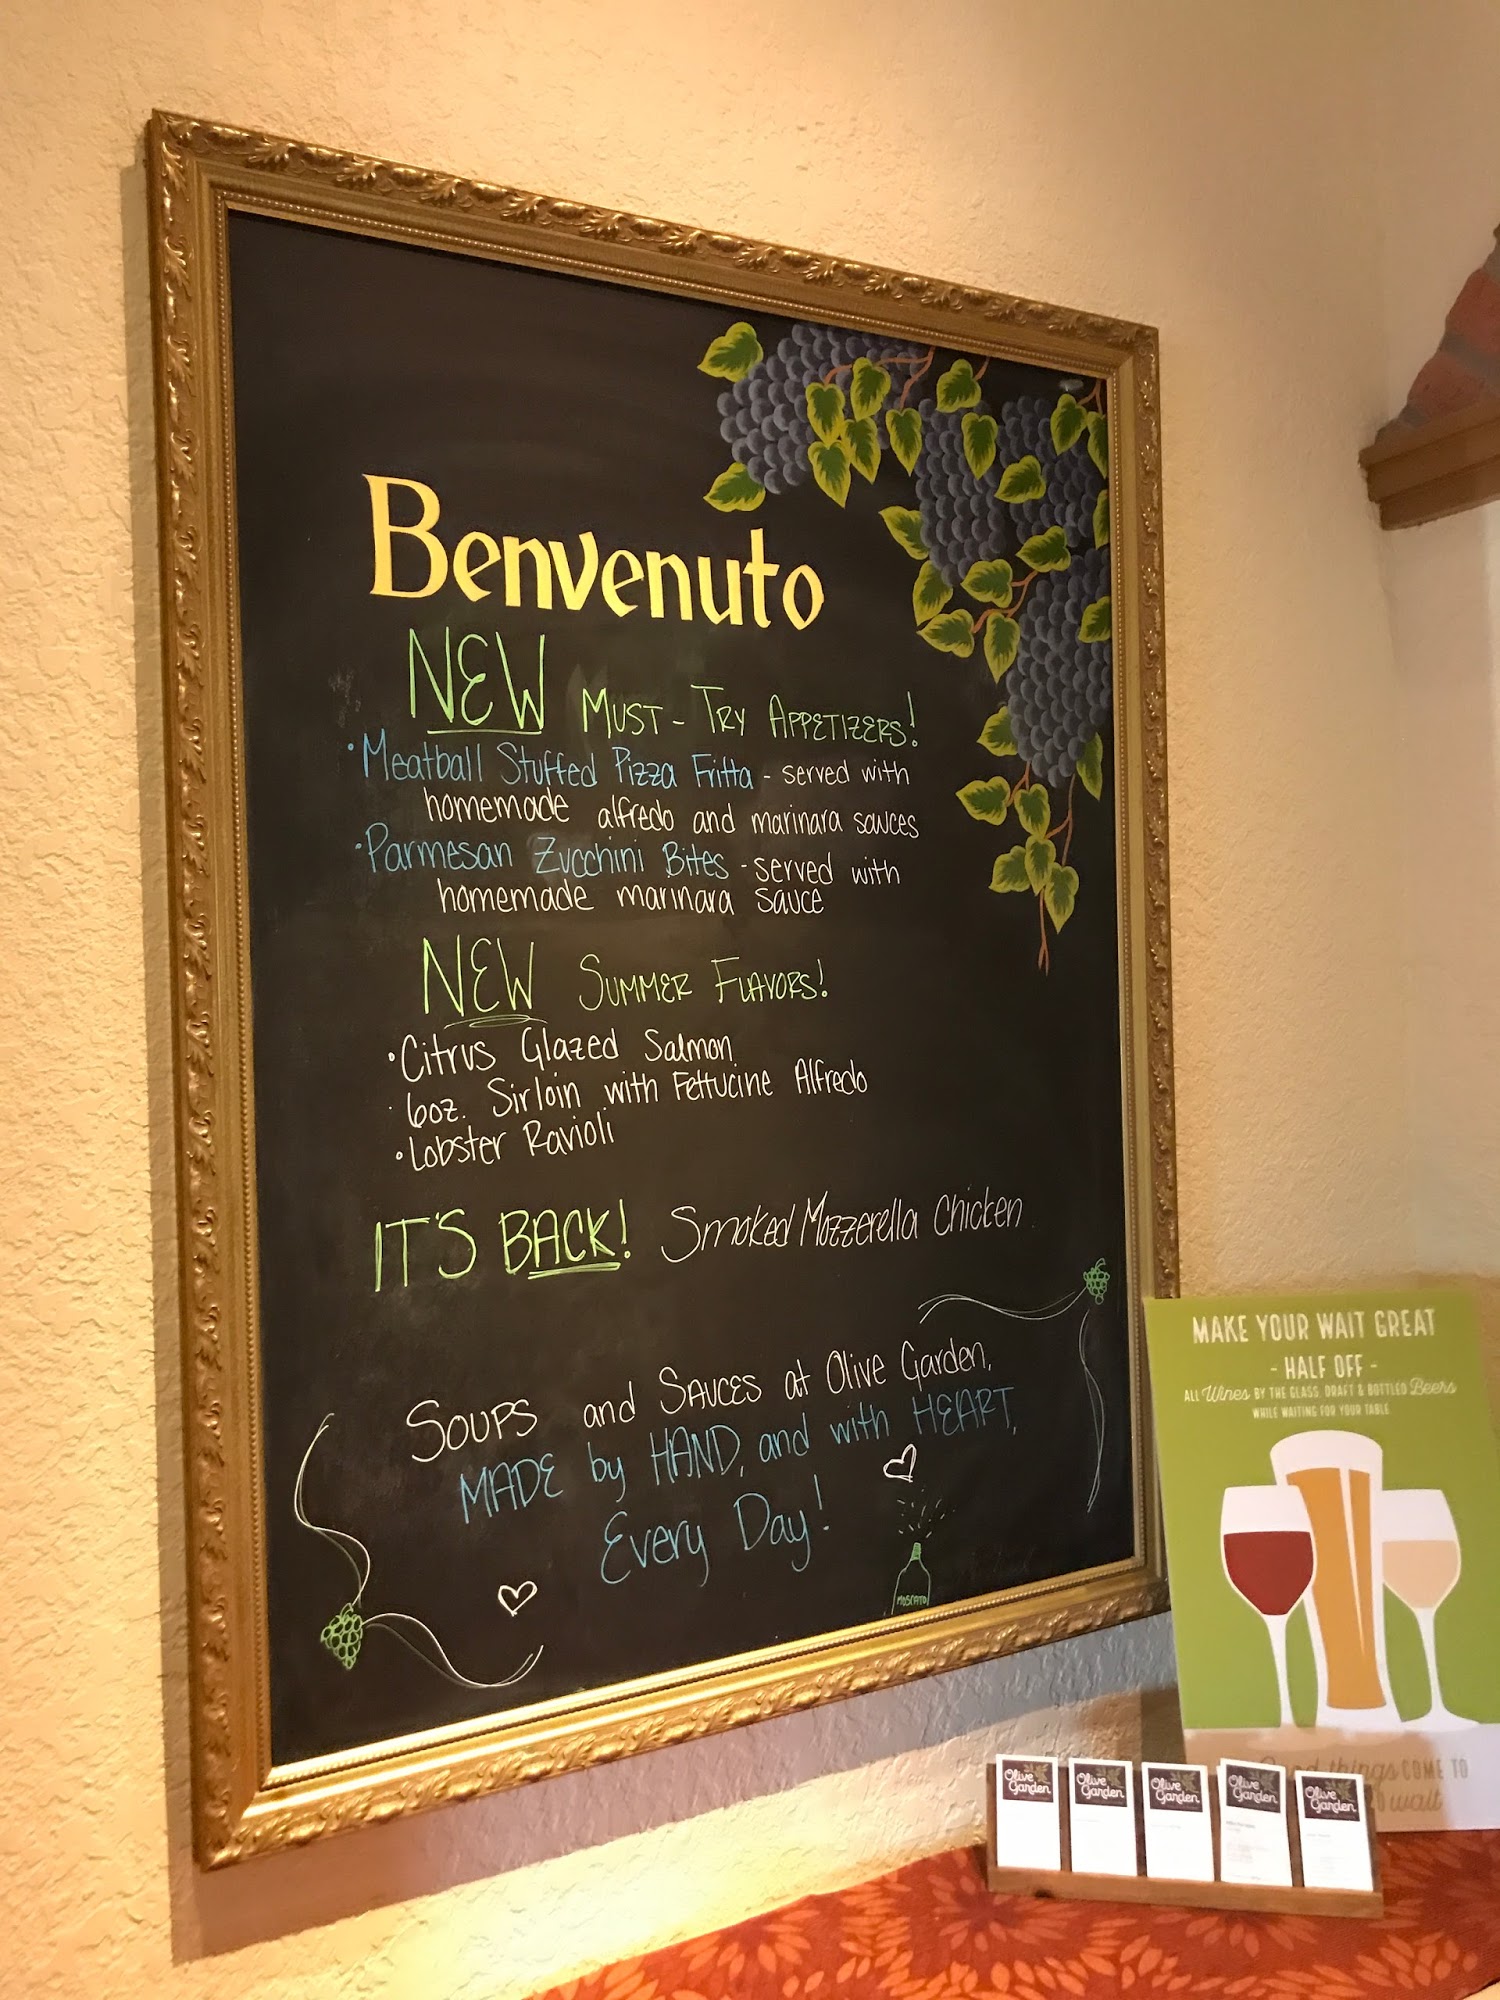 Benvenuto
NEW MUST-TRY APPETIZERS!
• Meatball Stuffed Pizza Fritta - served with
homemade alfredo and marinara sauces
• Parmesan Zucchini Bites - served with
homemade marinara sauce
NEW SUMMER FLAVORS!
• Citrus Glazed Salmon
• 6oz. Sirloin with Fettucine Alfredo
• Lobster Ravioli
IT'S BACK! Smoked Mozzerella Chicken
SOUPS and SAUCES at Olive Garden,
MADE by HAND, and with HEART,
Every Day!
MOSCATO
MAKE YOUR WAIT GREAT
- HALF OFF -
ALL Wines BY THE GLASS, DRAFT & BOTTLED Beers
WHILE WAITING FOR YOUR TABLE
things COME TO
wait
Olive Garden
Olive Garden
Olive Garden
Olive Garden
Olive Garden